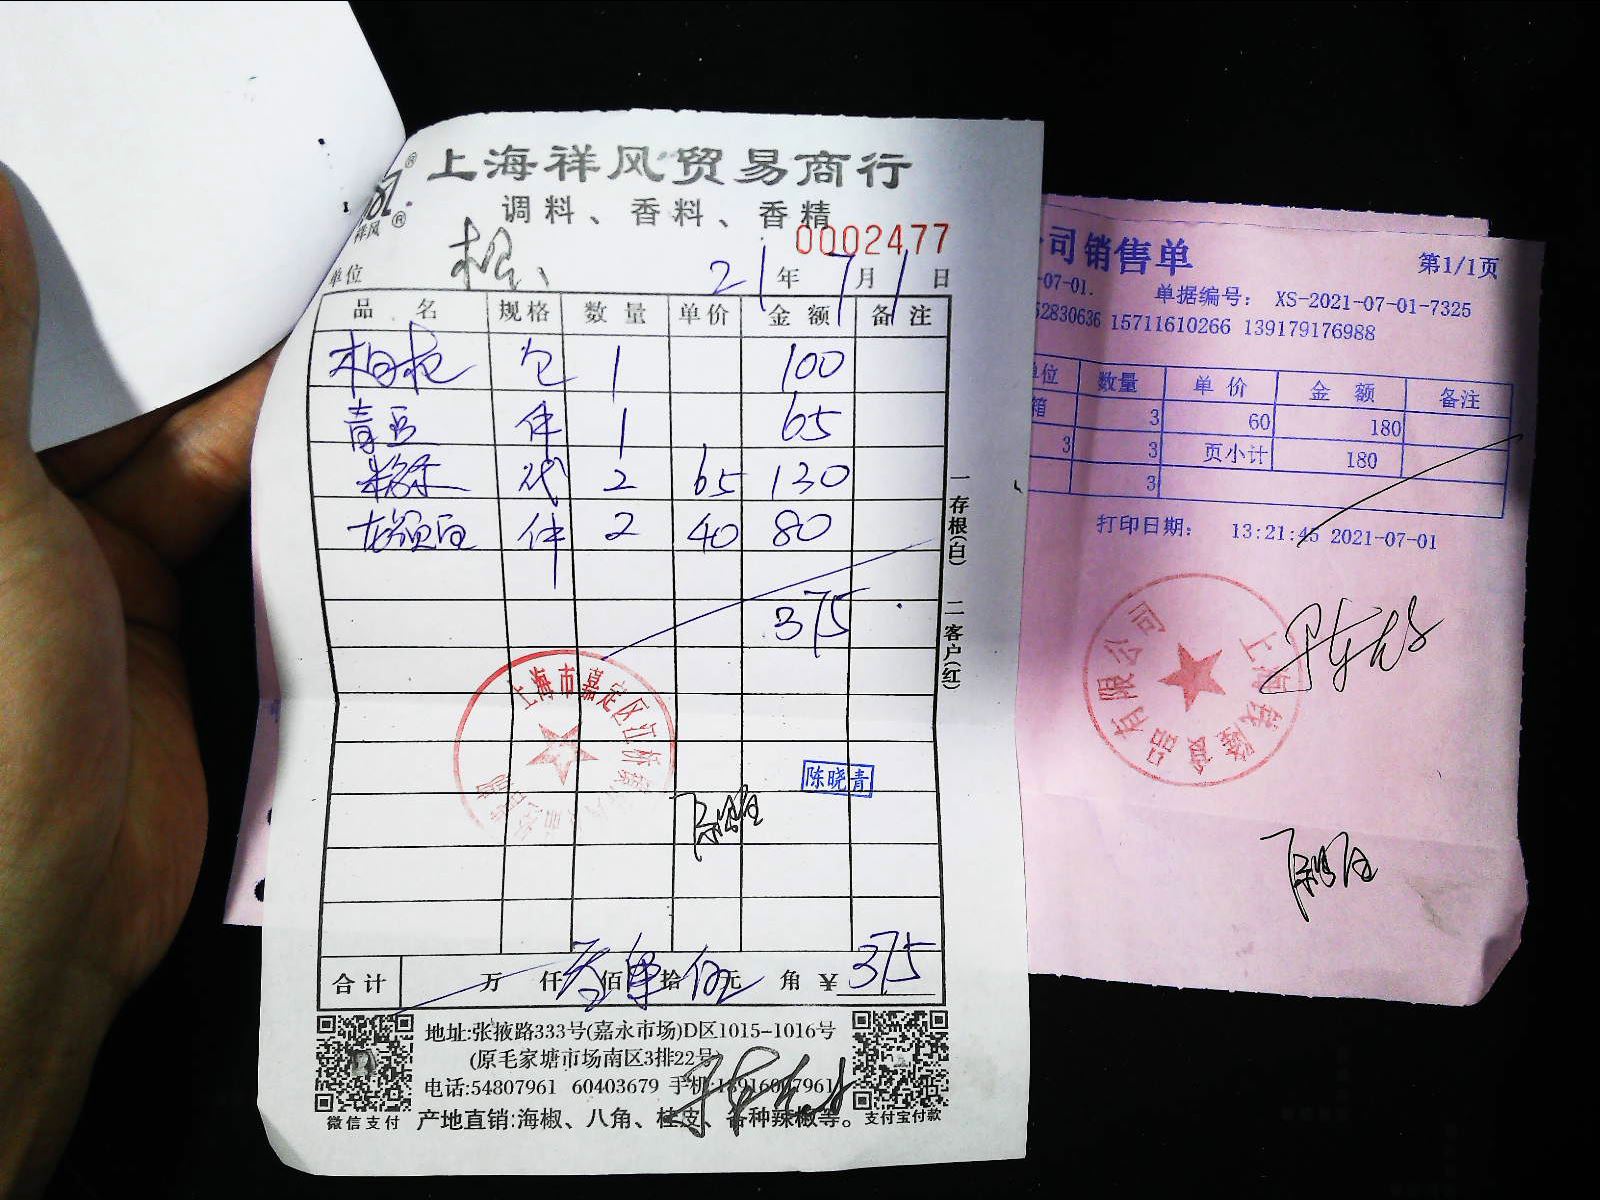 上海祥风贸易商行
调料、香料、香精
祥风
0002477
单位
21年7月1日
品名 规格 数量 单价 金额 备注
包 1 100
青豆 件 1 65
代 2 65 130
件 2 40 80
375
一存根(白) 二客户(红)
上海市嘉定区江桥
陈晓青
合计 万 仟 叁佰 拾 伍元 角 ¥375
地址:张掖路333号(嘉永市场)D区1015-1016号
(原毛家塘市场南区3排22号)
电话:54807961 60403679 手机:
微信支付
产地直销:海椒、八角、桂皮、各种辣椒等。
支付宝付款
公司销售单
第1/1页
-07-01.
单据编号: XS-2021-07-01-7325
52830636 15711610266 139179176988
单位 数量 单价 金额 备注
箱 3 60 180
3 3 页小计 180
3
打印日期: 13:21:45 2021-07-01
品有限公司
上海